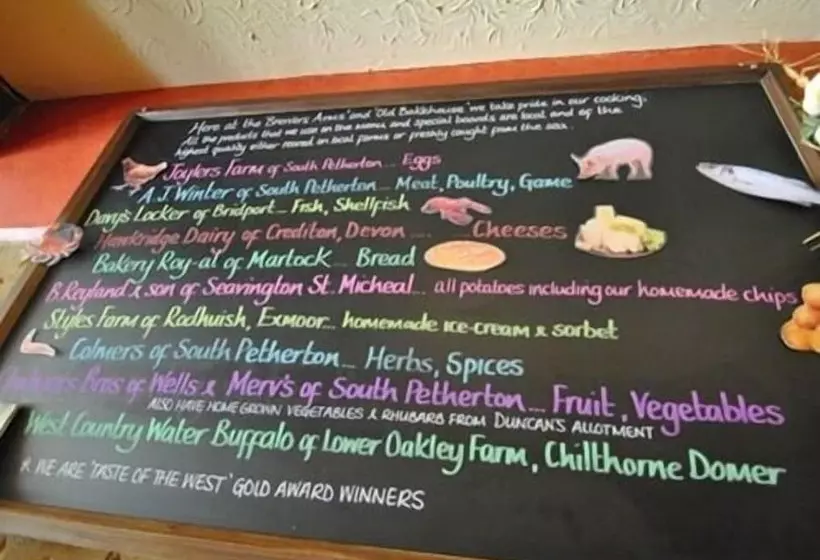 Here at the Brewers Arms' and 'Old Bakehouse' we take pride in our cooking.
All the products that we use on the menu and special boards are local and of the
highest quality either reared on local farms or freshly caught from the sea.
Jaylers Farm of South Petherton... Eggs
A.J. Winter of South Petherton... Meat, Poultry, Game
Davy's Locker of Bridport... Fish, Shellfish
Hawkridge Dairy of Crediton, Devon .... Cheeses
Bakery Roy-al of Martock... Bread
B. Reyland & son of Seavington St. Micheal... all potatoes including our homemade chips
Styles Farm of Rodhuish, Exmoor... homemade ice-cream & sorbet
Colmers of South Petherton... Herbs, Spices
Bros of Wells & Merv's of South Petherton.... Fruit, Vegetables
ALSO HAVE HOME GROWN VEGETABLES & RHUBARB FROM DUNCAN'S ALLOTMENT
West Country Water Buffalo of Lower Oakley Farm, Chilthorne Domer
* WE ARE 'TASTE OF THE WEST' GOLD AWARD WINNERS